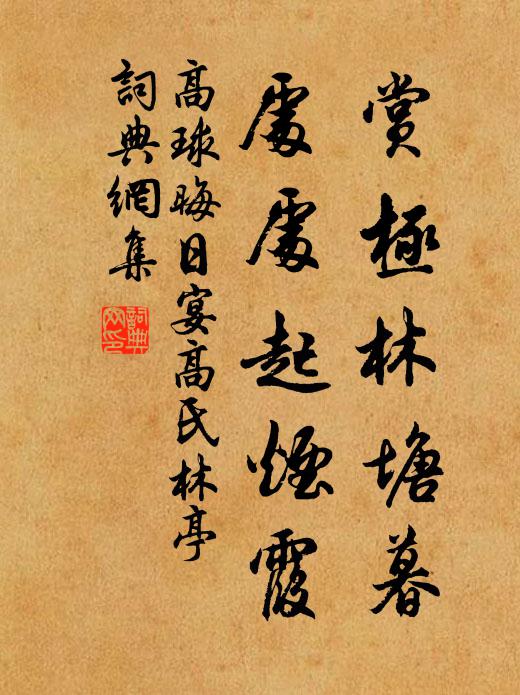 賞極林塘暮
處處起煙霞
高球晦日宴高氏林亭
詞典網集
詞典網印